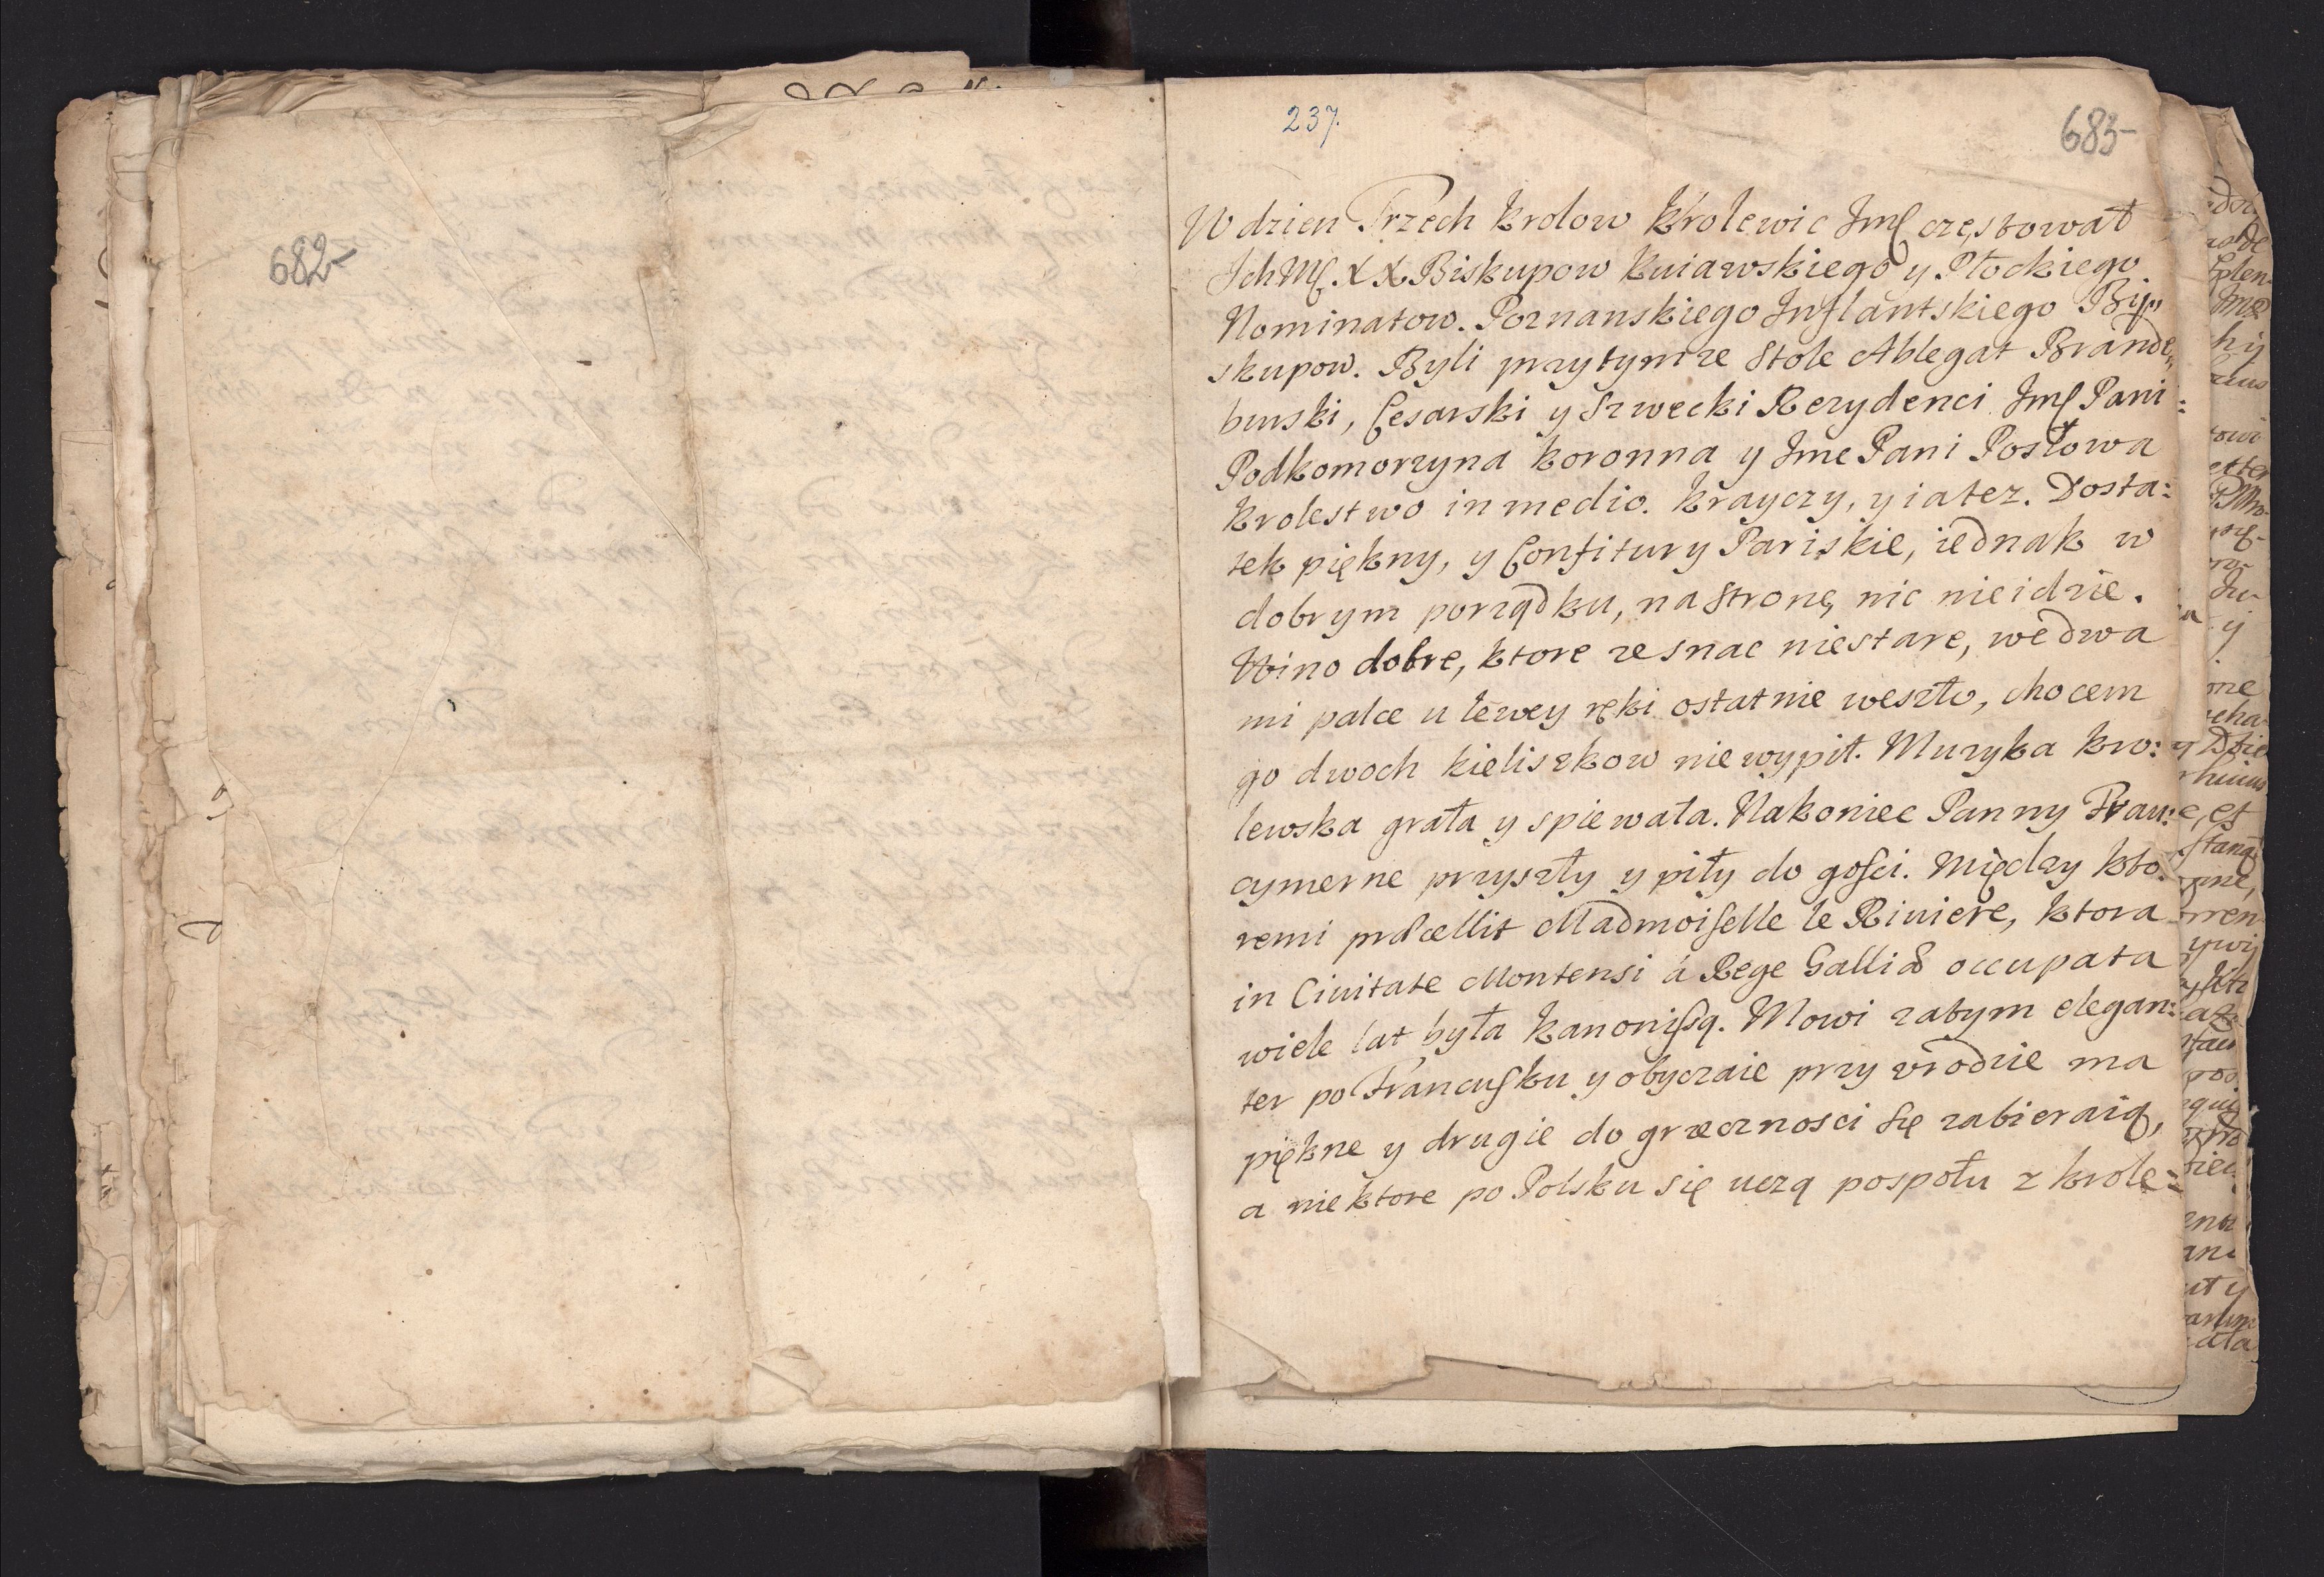 682
237.
683
W dzien Trzech Krolow Krolewic Jmſ częstował
Ich Mſ. XX Biskupow Kuiawskiego y Płockiego
Nominatow. Poznanskiego Inflantskiego Bij„
skupow. Byli przytymze Stole Ablegat Brande„
burski, Cesarski y Szwecki Rezydenci Jmſ Pani
Podkomorzyna Koronna y Jme Pani Posłowa
Krolestwo in medio. Krayczy, y ia tez. Dosta:
tek piękny, y Confitury Pariskie, iednak w
dobrym porządku, na Stronę nic nie idzie.
Wino dobre, ktore ze snac nie stare, we dwa
mi palce u lewey ręki ostatnie weszło, chocem
go dwoch kieliszkow nie wypił. Muzyka kro:
lewska grała y spiewała. Nakoniec Panny Frau:
cymerne przyszły y piły do goſci. Między kto:
remi præcellit Madmoiſelle le Riviere, ktora
in Civitate Montensi á Rege Galliæ occupata
wiele lat była Kanoniſsą. Mowi zatym elegan:
ter po Francuſku y obyczaie przy vrodzie ma
piękne y drugie do grzecznosci Się zabieraią,
a niektore po Polsku się uczą pospołu z krole: